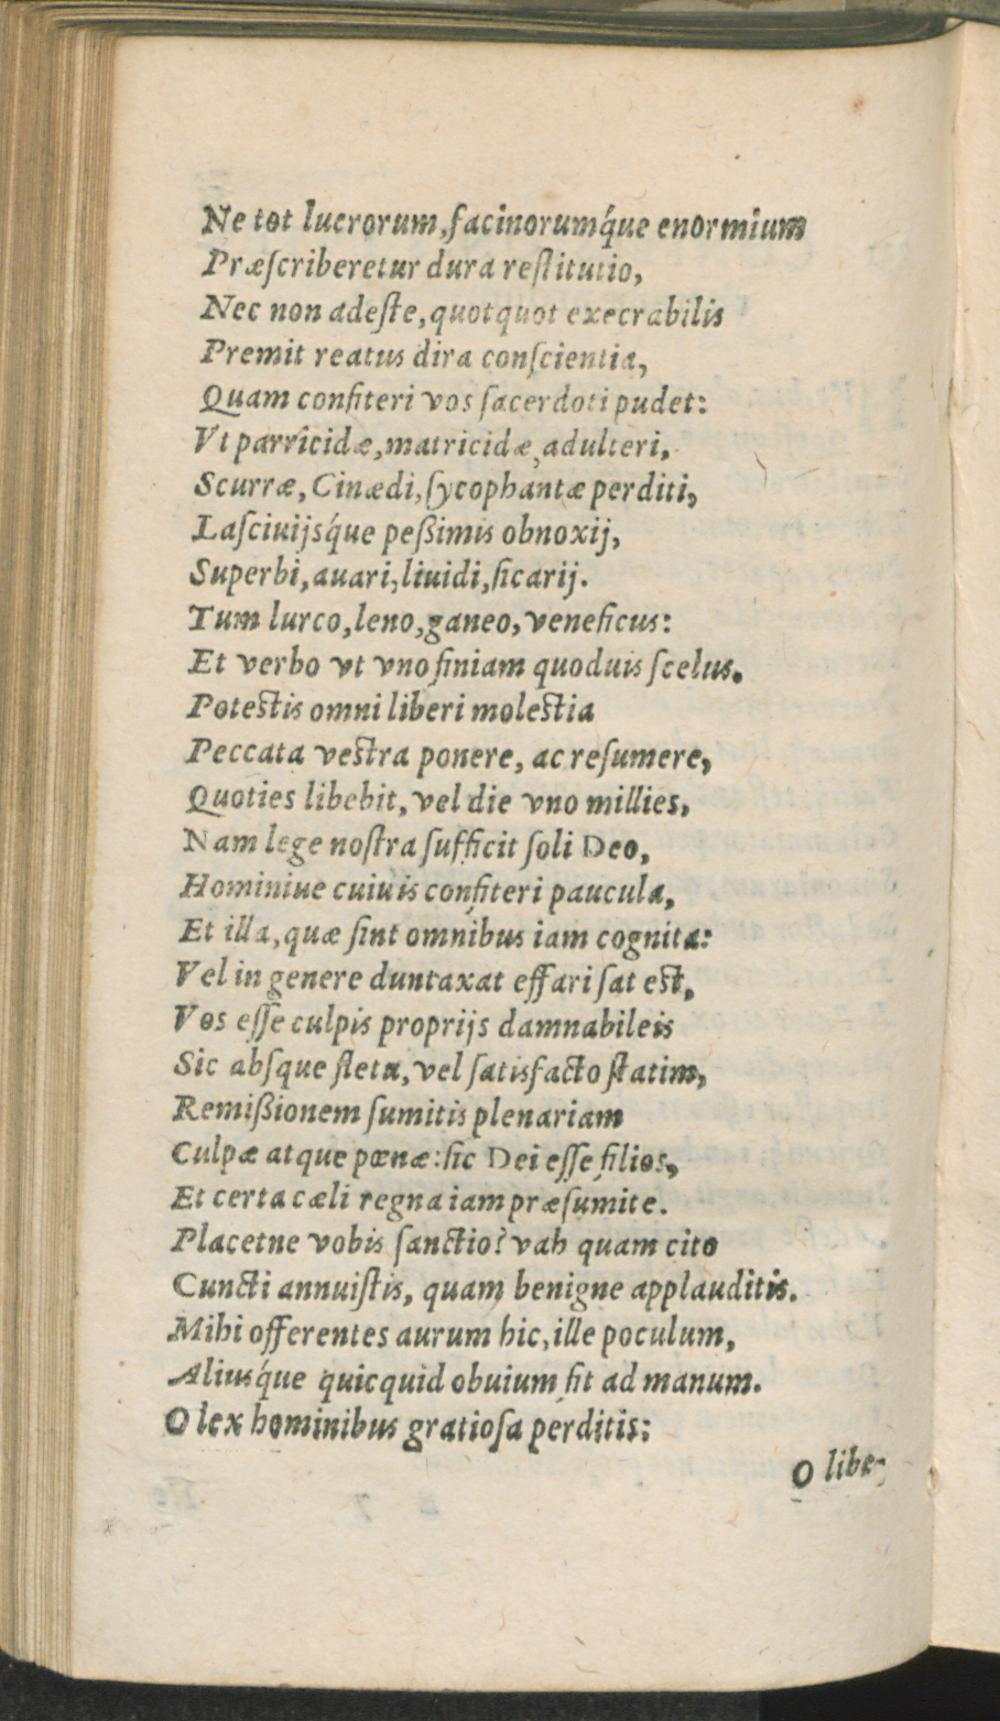 Ne tot lucrorum, facinorumq́ue enormium
Præſcriberetur dura reſtitutio,
Nec non adeſte, quotquot execrabilis
Premit reatus dira conſcientia,
Quam confiteri vos ſacerdoti pudet:
Vt parricidæ, matricidæ, adulteri,
Scurræ, Cinædi, ſycophantæ perditi,
Laſciuijsq́ue peßimis obnoxij,
Superbi, auari, liuidi, ſicarij.
Tum lurco, leno, ganeo, veneficus:
Et verbo vt vno finiam quoduis ſcelus.
Potestis omni liberi molestia
Peccata vestra ponere, ac reſumere,
Quoties libebit, vel die vno millies,
Nam lege noſtra ſufficit ſoli Deo,
Hominiue cuiuis confiteri paucula,
Et illa, quæ ſint omnibus iam cognita:
Vel in genere duntaxat effari ſat est,
Vos eſſe culpis proprijs damnabileis
Sic abſque fletu, vel ſatisfacto ſtatim,
Remißionem ſumitis plenariam
Culpæ atque pœnæ: ſic Dei eſſe filios,
Et certa cæli regna iam præſumite.
Placetne vobis ſanctio? vah quam cito
Cuncti annuiſtis, quam benigne applauditis.
Mihi offerentes aurum hic, ille poculum,
Aliusq́ue quicquid obuium fit ad manum.
O lex hominibus gratioſa perditis:
O libe-